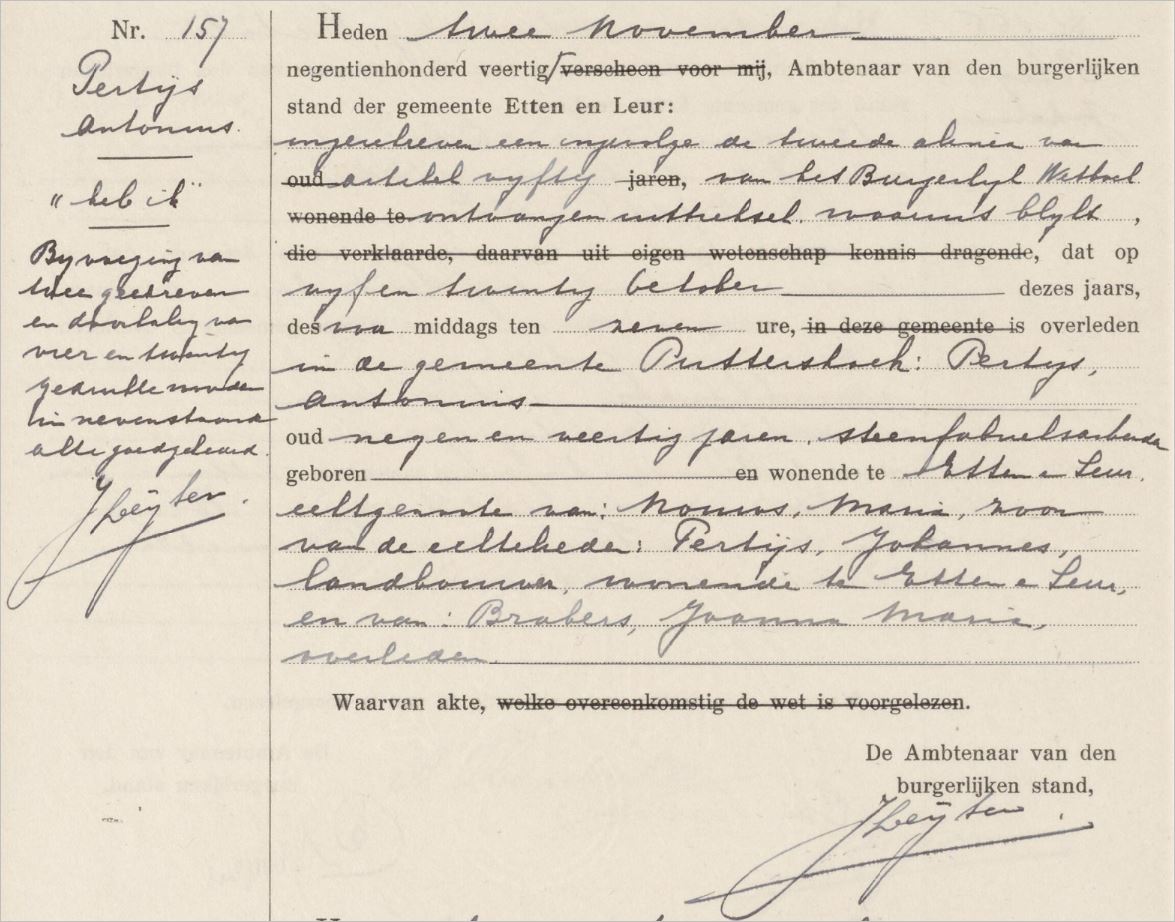 Nr. 157
Pertijs
Antonius.
"heb ik"
Byvoeging van
twee geschreven
en doorhaling van
vier en twintig
gedrukte woorden
in nevenstaande
akte goedgekeurd.
JLeijten.
Heden twee November
negentienhonderd veertig/verscheen voor mij, Ambtenaar van den burgerlijken
stand der gemeente Etten en Leur:
ingeschreven een ingevolge de tweede alinea van
oud artikel vyftig jaren, van het Burgerlyk Wetboek
wonende te ontvangen uittreksel waaruit blykt,
die verklaarde, daarvan uit eigen wetenschap kennis dragende, dat op
vyf en twintig October dezes jaars,
des voor middags ten zeven ure, in deze gemeente is overleden
in de gemeente Puttershoek: Pertys,
Antonius
oud negen en veertig jaren, steenfabrieksarbeider
geboren en wonende te Etten e Leur,
echtgenoote van: Mouws, Maria, zoon
van de echtelieden: Pertijs, Johannes,
landbouwer, wonende te Etten e Leur,
en van: Brabers, Joanna Maria,
overleden.
Waarvan akte, welke overeenkomstig de wet is voorgelezen.
De Ambtenaar van den
burgerlijken stand,
JLeijten.